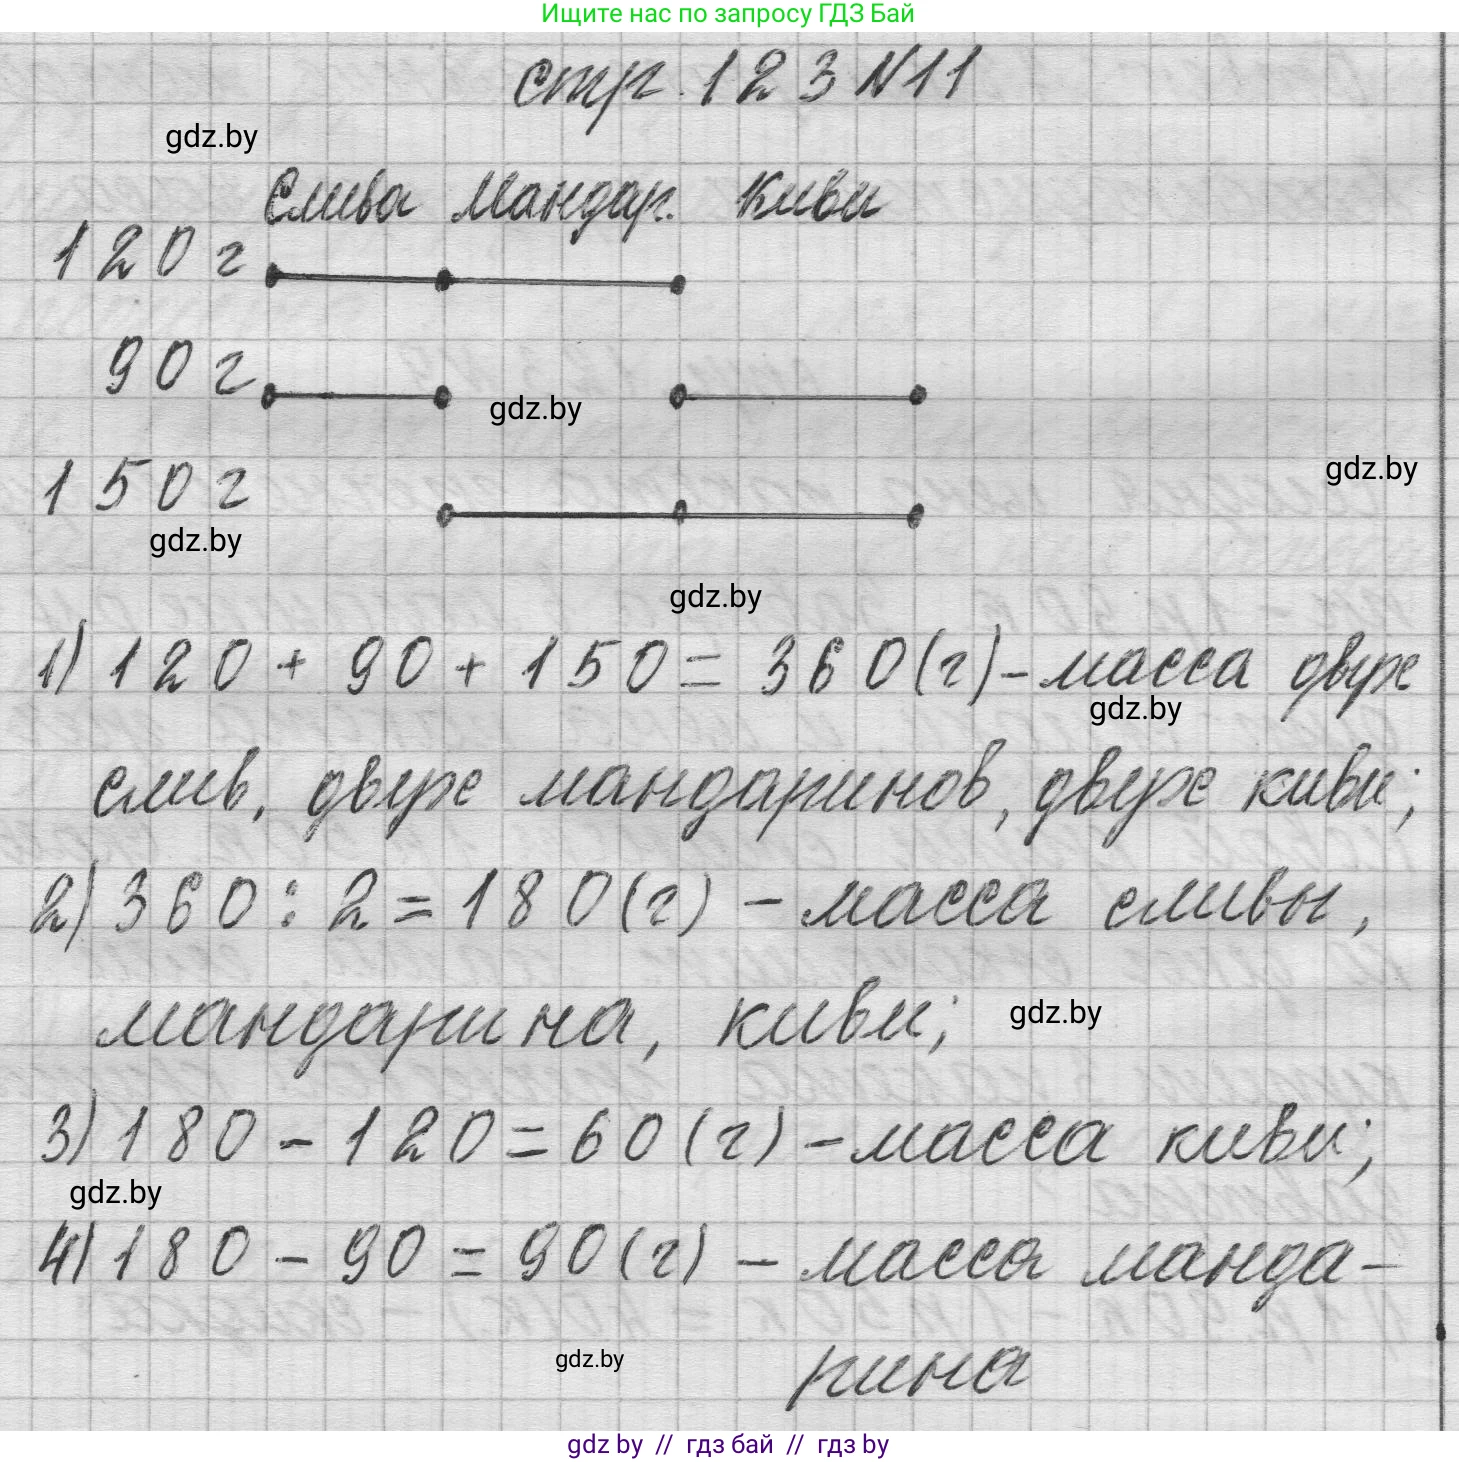 Ищите нас по запросу ГДЗ Бай
стр. 123 N11
gdz.by
Слива Мандар. Киви
120 г
90 г
gdz.by
gdz.by
150 г
gdz.by
gdz.by
1) 120 + 90 + 150 = 360 (г) – масса двух
gdz.by
слив, двух мандаринов, двух киви;
2) 360 : 2 = 180 (г) – масса сливы,
мандарина, киви;
gdz.by
3) 180 – 120 = 60 (г) – масса киви;
gdz.by
4) 180 – 90 = 90 (г) – масса манда–
gdz.by
рина
gdz by // гдз бай // гдз by